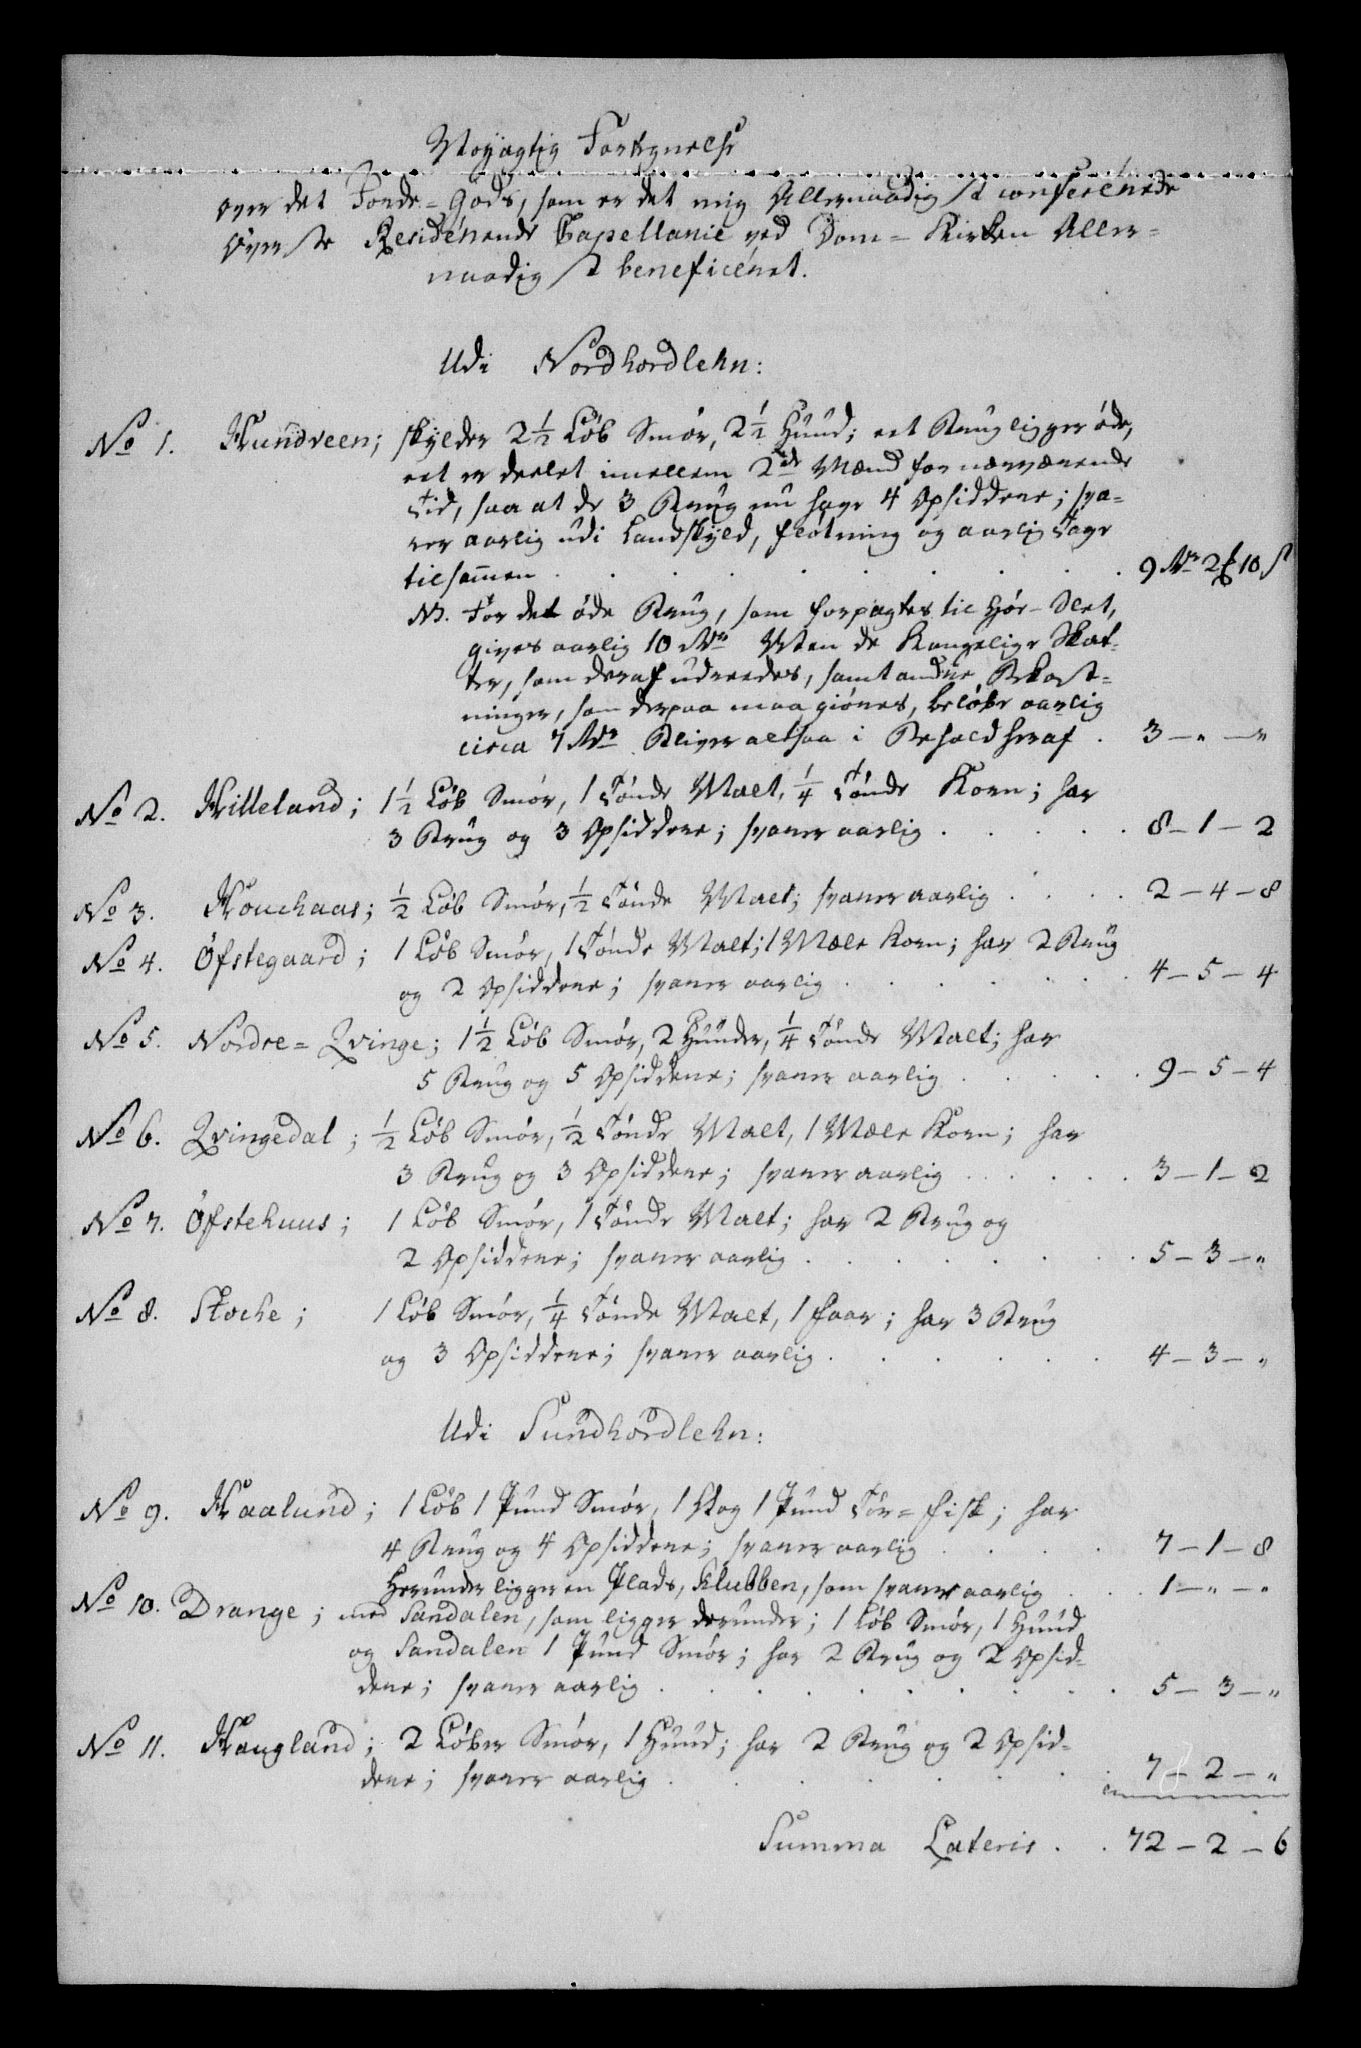 Nøyagtig Fortegnelse
over det Jorde-Gods, som er det mig Allernaadigst confererede
Øverste Residerende Capellanie ved Dom-Kirken Aller-
naadigst beneficeret.
Udi Nordhordlehn:
No 1. Hundveen; skylder 2 1/2 Løb Smør, 2 1/2 Huud; eet Brug ligger øde,
eet er deelet imellem 2de Mænd for nærværende
Tid, saa at de 3 Brug nu have 4 Opsiddere; sva-
rer aarlig udi Landskyld, fløtning og aarlig Tage
tilsammen . . . . . . . 9 Rdr 2 ℔ 10 s
NB. For det øde Brug, som forpagtes til Hør-Slet,
gives aarlig 10 Rdr Men de Kongelige Skat-
ter, som deraf udreedes, samt andre Bekost-
ninger, som derpaa maa giøres, beløbe aarlig
circa 7 Rdr Bliver altsaa i Behold heraf . 3 — " — "
No 2. Hilleland; 1 1/2 Løb Smør, 1 Tønde Malt, 1/4 Tønde Korn; har
3 Brug og 3 Opsiddere; svarer aarlig . . . . . 8 — 1 — 2
No 3. Houchaas; 1/2 Løb Smør, 1/2 Tønde Malt; svarer aarlig . . . 2 — 4 — 8
No 4. Øfstegaard; 1 Løb Smør, 1 Tønde Malt; 1 Mæle Korn; har 2 Brug
og 2 Opsiddere; svarer aarlig . . . . . . 4 — 5 — 4
No 5. Nordre=Qvinge; 1 1/2 Løb Smør, 2 Huuder, 1/4 Tønde Malt; har
5 Brug og 5 Opsiddere; svarer aarlig . . . . . 9 — 5 — 4
No 6. Qvingedal; 1/2 Løb Smør, 1/2 Tønde Malt, 1 Mæle Korn; har
3 Brug og 3 Opsiddere; svarer aarlig . . . . . 3 — 1 — 2
No 7. Øfstehuus; 1 Løb Smør, 1 Tønde Malt; har 2 Brug og
2 Opsiddere; svarer aarlig . . . . . . . 5 — 3 — "
No 8. Stoche; 1 Løb Smør, 1/4 Tønde Malt, 1 faar; har 3 Brug
og 3 Opsiddere; svarer aarlig . . . . . . 4 — 3 — "
Udi Sundhordlehn:
No 9. Haalund; 1 Løb 1 Pund Smør, 1 Vog 1 Pund Tør=fisk; har
4 Brug og 4 Opsiddere; svarer aarlig . . . . 7 — 1 — 8
Herunder ligger en Plads, Klubben, som svarer aarlig . . 1 — " — "
No 10. Drange; med Sandalen, som ligger derunder; 1 Løb Smør, 1 Huud
og Sandalen 1 Pund Smør; har 2 Brug og 2 Opsid-
dere; svarer aarlig . . . . . . . . . 5 — 3 — "
No 11. Haugland; 2 Løber Smør, 1 Huud; har 2 Brug og 2 Opsid-
dere; svarer aarlig . . . . . . . . 7 — 2 — "
Summa Lateris . . 72 — 2 — 6